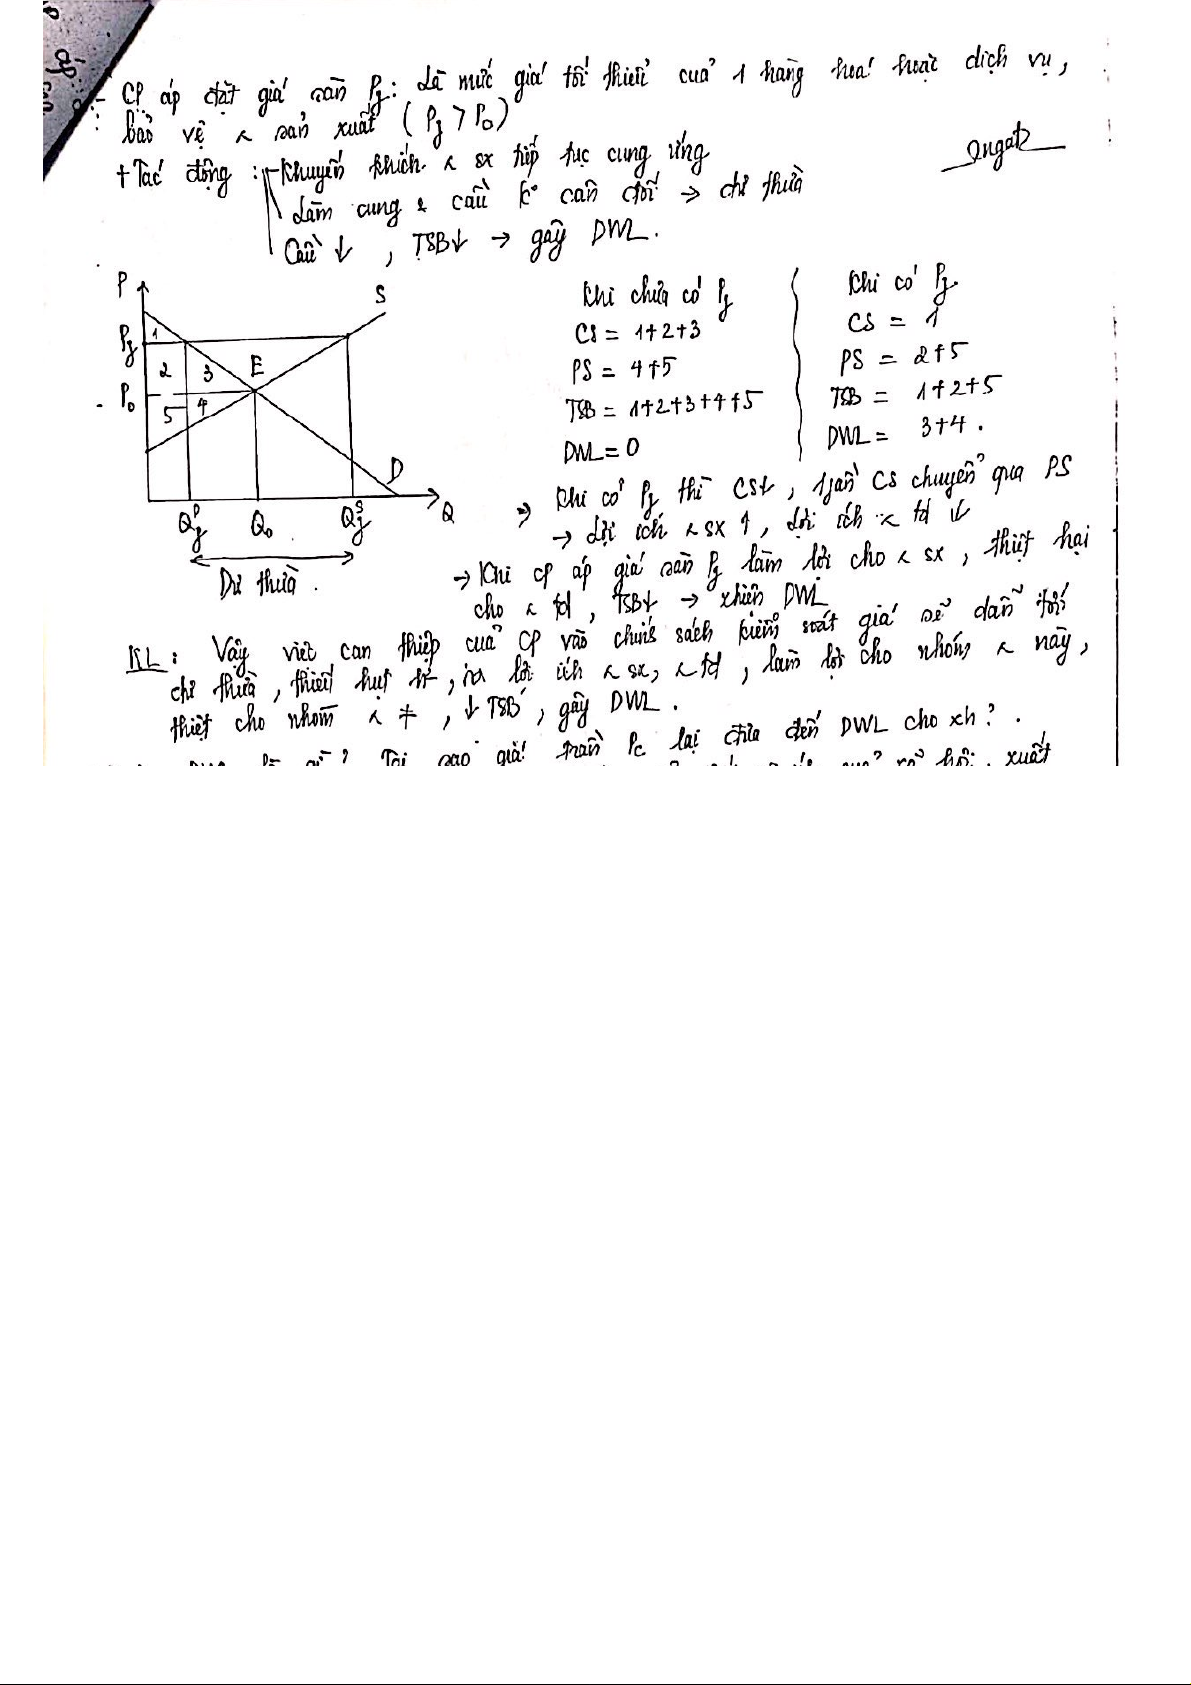 - CP áp đặt giá sàn Pf: Là mức giá tối thiểu của 1 hàng hoá hoặc dịch vụ,
bảo vệ < sản xuất (Pf > P0)
+ Tác động : - Khuyến khích < sx tiếp tục cung ứng
Làm cung & cầu k° cân đối → dư thừa
Cầu ↓, TSB↓ → gây DWL.
P
S
Pf
1
2
3
E
P0
4
5
D
Q
Qf^D
Q0
Qf^S
Dư thừa.
Khi chưa có Pf
CS = 1+2+3
PS = 4+5
TSB = 1+2+3+4+5
DWL = 0
Khi có Pf
CS = 1
PS = 2+5
TSB = 1+2+5
DWL = 3+4.
→ Khi có Pf thì CS↓, 1 phần CS chuyển qua PS
→ Lợi ích < sx ↑, lợi ích < td ↓
→ Khi CP áp giá sàn Pf làm lợi cho < sx, thiệt hại
cho < td, TSB↓ → DWL
KL: Vậy việc can thiệp của CP vào chính sách kiểm soát giá sẽ dẫn tới
dư thừa, thiếu hụt lợi ích < sx, < td, làm lợi cho nhóm < này,
thiệt cho nhóm < ≠, ↓ TSB, gây DWL.
DWL là gì? Tại sao giá trần Pc lại đưa đến DWL cho xh?.